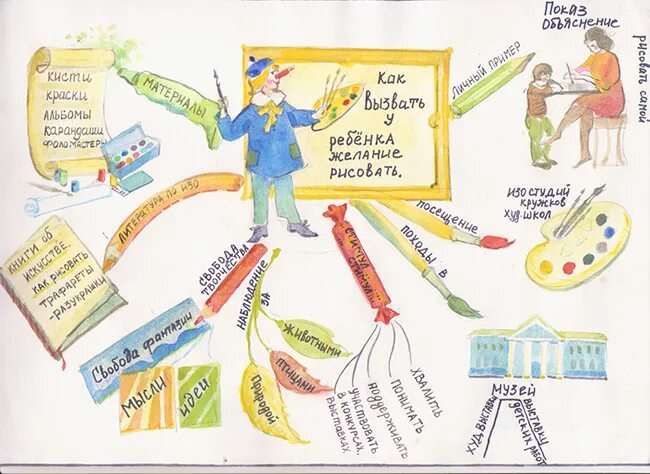 Как
Вызвать
у
ребёнка
желание
рисовать.
МАТЕРИАЛЫ
КИСТИ
КРАСКИ
АЛЬБОМЫ
КАРАНДАШИ
ФЛОМАСТЕРЫ
ЛИТЕРАТУРА ПО ИЗО
КНИГИ ОБ
ИСКУССТВЕ
КАК РИСОВАТЬ
ТРАФАРЕТЫ
-РАЗУКРАШКИ
СВОБОДА
ТВОРЧЕСТВА
Свобода фантазии
МЫСЛИ
идеи
НАБЛЮДЕНИЕ
ЗА
Животными
птицами
Природой
СТИМУЛ...
СТИМУЛ...
ХВАЛИТЬ
ПОНИМАТЬ
поддерживать
участвовать
в конкурсах,
выставках
ПОХОДЫ В
МУЗЕЙ
ХУД. ВЫСТАВКИ
ВЫСТАВКИ
ДЕТСКИХ РАБОТ
ПОСЕЩЕНИЕ
ИЗОСТУДИЙ
КРУЖКОВ
ХУД. ШКОЛ
ЛИЧНЫЙ ПРИМЕР
Показ
Объяснение
рисовать самой